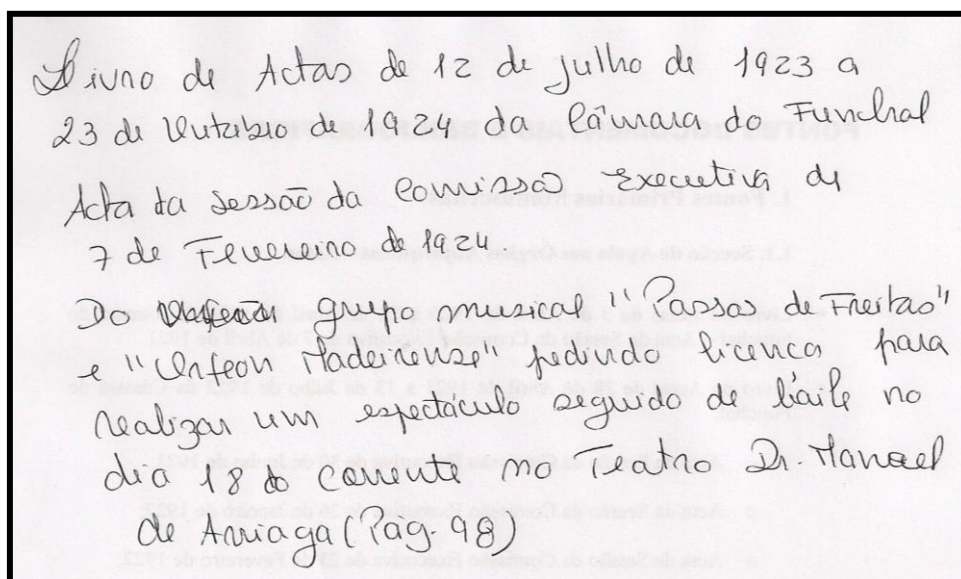 Livro de Actas de 12 de julho de 1923 a
23 de Outubro de 1924 da Câmara do Funchal
Acta da sessão da Comissão Executiva de
7 de Fevereiro de 1924.
Do Orfeão grupo musical "Passos de Freitas"
e "Orfeon Madeirense" pedindo licença para
realizar um espectáculo seguido de baile no
dia 18 do corrente no Teatro Dr. Manoel
de Arriaga (Pág. 98)